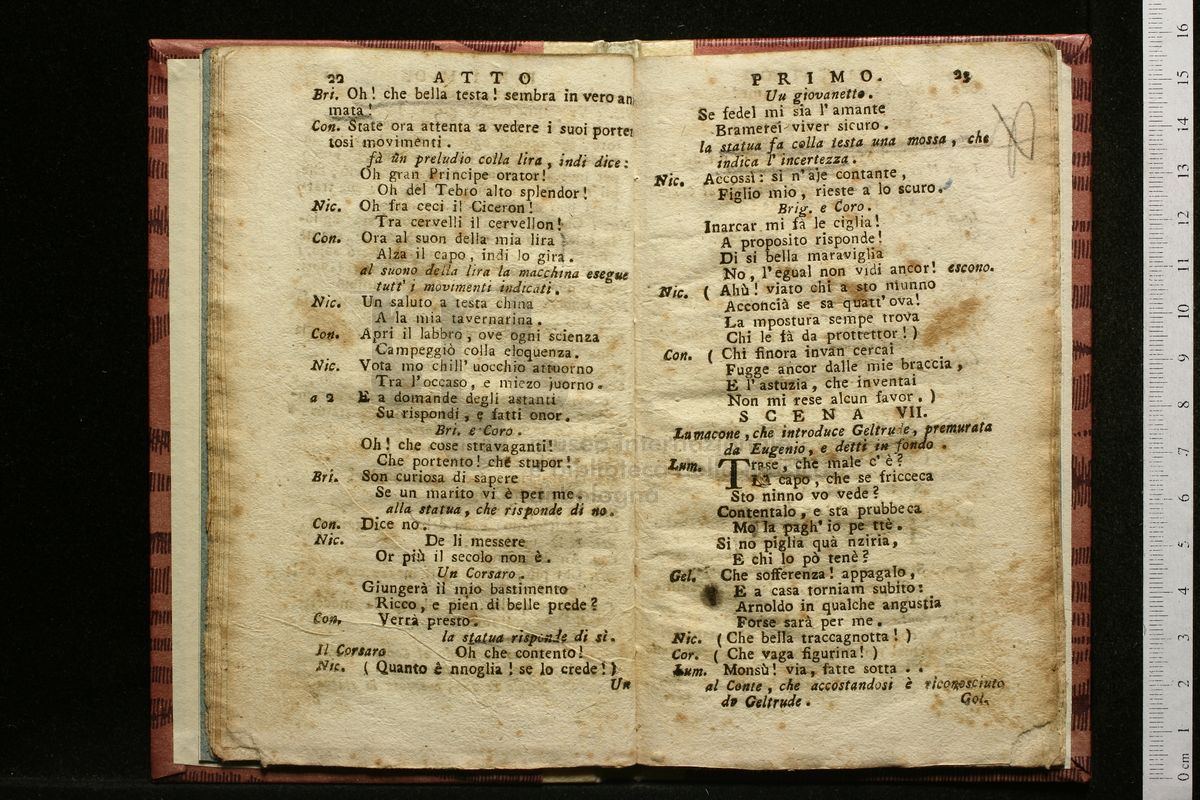 22 ATTO
Bri. Oh! che bella testa! sembra in vero an
mata!
Con. State ora attenta a vedere i suoi porten
tosi movimenti.
fà un preludio colla lira, indi dice:
Oh gran Principe orator!
Oh del Tebro alto splendor!
Nic. Oh fra ceci il Ciceron!
Tra cervelli il cervellon!
Con. Ora al suon della mia lira
Alza il capo, indi lo gira.
al suono della lira la macchina esegue
tutt' i movimenti indicati.
Nic. Un saluto a testa china
A la mia tavernarina.
Con. Apri il labbro, ove ogni scienza
Campeggiò colla eloquenza.
Nic. Vota mo chill' uocchio attuorno
Tra l'occaso, e miezo juorno.
a 2 E a domande degli astanti
Su rispondi, e fatti onor.
Bri. e Coro.
Oh! che cose stravaganti!
Che portento! che stupor!
Bri. Son curiosa di sapere
Se un marito vi è per me.
alla statua, che risponde di no.
Con. Dice no.
Nic. De li messere
Or più il secolo non è.
Un Corsaro.
Giungerà il mio bastimento
Ricco, e pien di belle prede?
Con. Verrà presto.
la statua risponde di sì.
Il Corsaro Oh che contento!
Nic. (Quanto è nnoglia! se lo crede!)
Un
PRIMO. 23
Uu giovanetto.
Se fedel mi sia l'amante
Bramerei viver sicuro.
la statua fa colla testa una mossa, che
indica l'incertezza.
Nic. Accossì: si n'aje contante,
Figlio mio, rieste a lo scuro.
Brig. e Coro.
Inarcar mi fà le ciglia!
A proposito risponde!
Di sì bella maraviglia
No, l'egual non vidi ancor! escono.
Nic. (Ahù! viato chi a sto munno
Acconcià se sa quatt'ova!
La mpostura sempe trova
Chi le fà da prottettor!)
Con. (Chi finora invan cercai
Fugge ancor dalle mie braccia,
E l'astuzia, che inventai
Non mi rese alcun favor.)
SCENA VII.
Lumacone, che introduce Geltrude, premurata
da Eugenio, e detti in fondo.
Lum. Trase, che male c'è?
Là capo, che se fricceca
Sto ninno vo vede?
Contentalo, e sta prubbeca
Mo la pagh' io pe ttè.
Si no piglia quà nziria,
E chi lo pò tenè?
Gel. Che sofferenza! appagalo,
E a casa torniam subito:
Arnoldo in qualche angustia
Forse sarà per me.
Nic. (Che bella traccagnotta!)
Cor. (Che vaga figurina!)
Lum. Monsù! via, fatte sotta..
al Conte, che accostandosi è riconosciuto
da Geltrude.
Gol.
16
15
14
13
12
11
10
9
8
7
6
5
4
3
2
1
0 cm